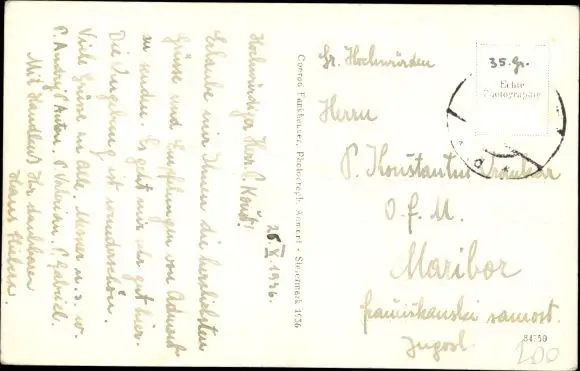 26.X.1936.
Hochwürdiger Herr P. Konst!
Erlaube mir Ihnen die herzlichsten
Grüsse und Empfehlungen von Admont
zu senden. Es geht mir sehr gut hier.
Die Umgebung ist wunderschön.
Viele Grüsse an alle. Mesner u. s. w.
P. Andrej, Anton, P. Valerian, P. Gabriel.
Mit Handkuss Ihr dankbarer
Hans
Conrad Fankhauser, Photograph Admont - Steiermark 1936
Sr. Hochwürden
Herrn
P. Konstantin
O. f. M.
Maribor
frančiškanski samost.
Jugosl.
35.gr.
Echte
Photographie
84750
200